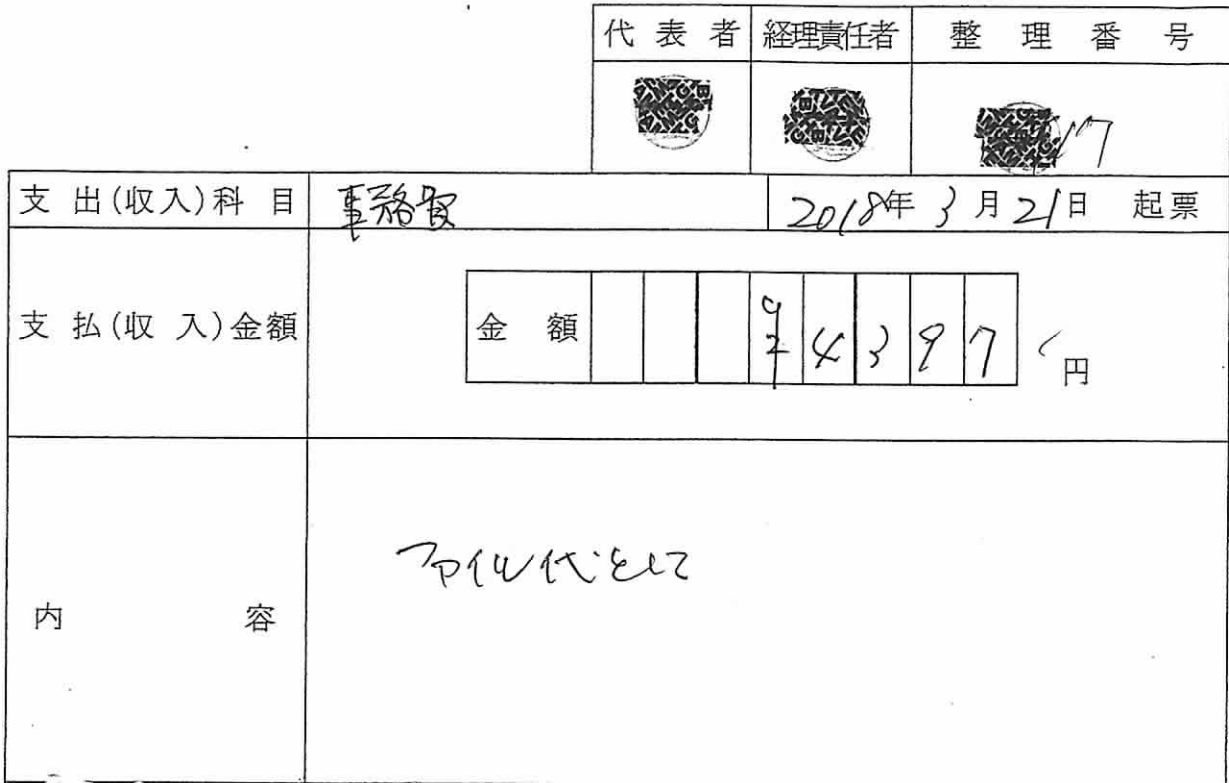 代表者 経理責任者 整理番号
17
支出(収入)科目 事務費 2018年3月21日 起票
支払(収入)金額 金額 ¥4397 円
内容 ファイル代として